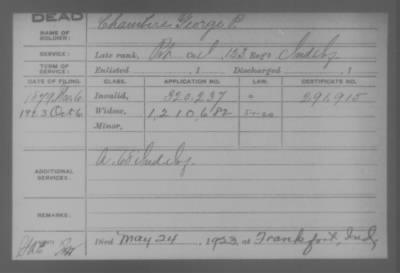 DEAD
NAME OF SOLDIER: Chambers George P.
SERVICE: Late rank, Co. 153 Reg't Ind. Inf.
TERM OF SERVICE: Enlisted , 1 Discharged , 1
DATE OF FILING. CLASS. APPLICATION NO. LAW. CERTIFICATE NO.
1879 Invalid, 320,237 291,915
1923 Oct 6 Widow, 1,210,682
Minor,
ADDITIONAL SERVICES: A. 65 Ind. Inf.
REMARKS:
Died May 24, 1923, at Frankfort, Ind.